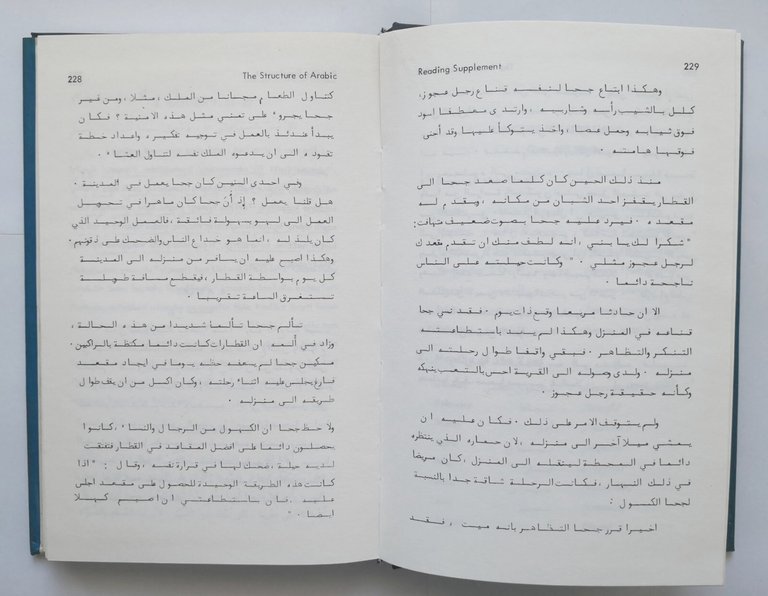 228
The Structure of Arabic
كتناول الطعام مجانا من الملك ، مثلا ، ومن غير
جحا يجرو على تمني مثل هذه الامنية ؟ فكان
يبدأ عندئذ بالعمل في توجيه تفكيره واعداد خطة
تقوده الى ان يدعوه الملك نفسه لتناول العشاء .
وفي احدى السنين كان جحا يعمل في المدينة .
هل قلنا يعمل ؟ إذ أن جحا كان ماهرا في تحويل
العمل الى لهو بسهولة فائقة ، فالعمل الوحيد الذي
كان يلذ له ، انما هو خداع الناس والضحك على ذقونهم .
وهكذا اصبح عليه ان يسافر من منزله الى المدينة
كل يوم بواسطة القطار ، فيقطع مسافة طويلة
تستغرق الساعة تقريبا .
تألم جحا تألما شديدا من هذه الحالة ،
وزاد في ألمه ان القطارات كانت دائما مكتظة بالراكبين .
مسكين جحا لم يسعفه حظه يوما في ايجاد مقعد
فارغ يجلس عليه اثناء رحلته ، وكان اكل من ان يقف طوال
طريقه الى منزله .
ولاحظ جحا ان الكهول من الرجال والنساء ، كانوا
يحصلون دائما على افضل المقاعد في القطار فتفتقت
لديه حيلة ، ضحك لها في قرارة نفسه ، وقال : " اذا
كانت هذه الطريقة الوحيدة للحصول على مقعد اجلس
عليه ، فان باستطاعتي ان اصبح كهلا
ايضا . "
Reading Supplement
229
وهكذا ابتاع جحا لنفسه قناع رجل عجوز،
كلل بالشيب رأسه وشاربيه ، وارتدى معطفا اسود
فوق ثيابه وحمل عصا ، واخذ يتوكأ عليها وقد أحنى
فوقها هامته .
منذ ذلك الحين كان كلما صعد جحا الى
القطار يقفز احد الشبان من مكانه ، ويقدم له
مقعده . فيرد عليه جحا بصوت ضعيف متهافت :
" شكرا لك يا بني ، انه لطف منك ان تقدم مقعدك
لرجل عجوز مثلي . " وكانت حيلته على الناس
ناجحة دائما .
الا ان حادثا مريعا وقع ذات يوم . فقد نسي جحا
قناعه في المنزل وهكذا لم يعد باستطاعته
التنكر والتظاهر . فبقي واقفا طوال رحلته الى
منزله . ولدى وصوله الى القرية احس بالتعب ينهكه
وكأنه حقيقة رجل عجوز .
ولم يتوقف الامر على ذلك . فكان عليه ان
يمشي ميلا آخر الى منزله ، لان حماره الذي ينتظره
دائما في المحطة لينقله الى المنزل ، كان مريضا
في ذلك النهار ، فكانت الرحلة شاقة جدا بالنسبة
لجحا الكسول :
اخيرا قرر جحا التظاهر بانه ميت ، فقد